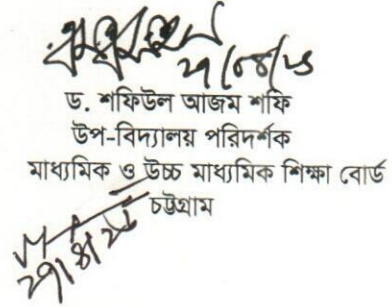 ড. শফিউল আজম শফি
উপ-বিদ্যালয় পরিদর্শক
মাধ্যমিক ও উচ্চ মাধ্যমিক শিক্ষা বোর্ড
চট্টগ্রাম